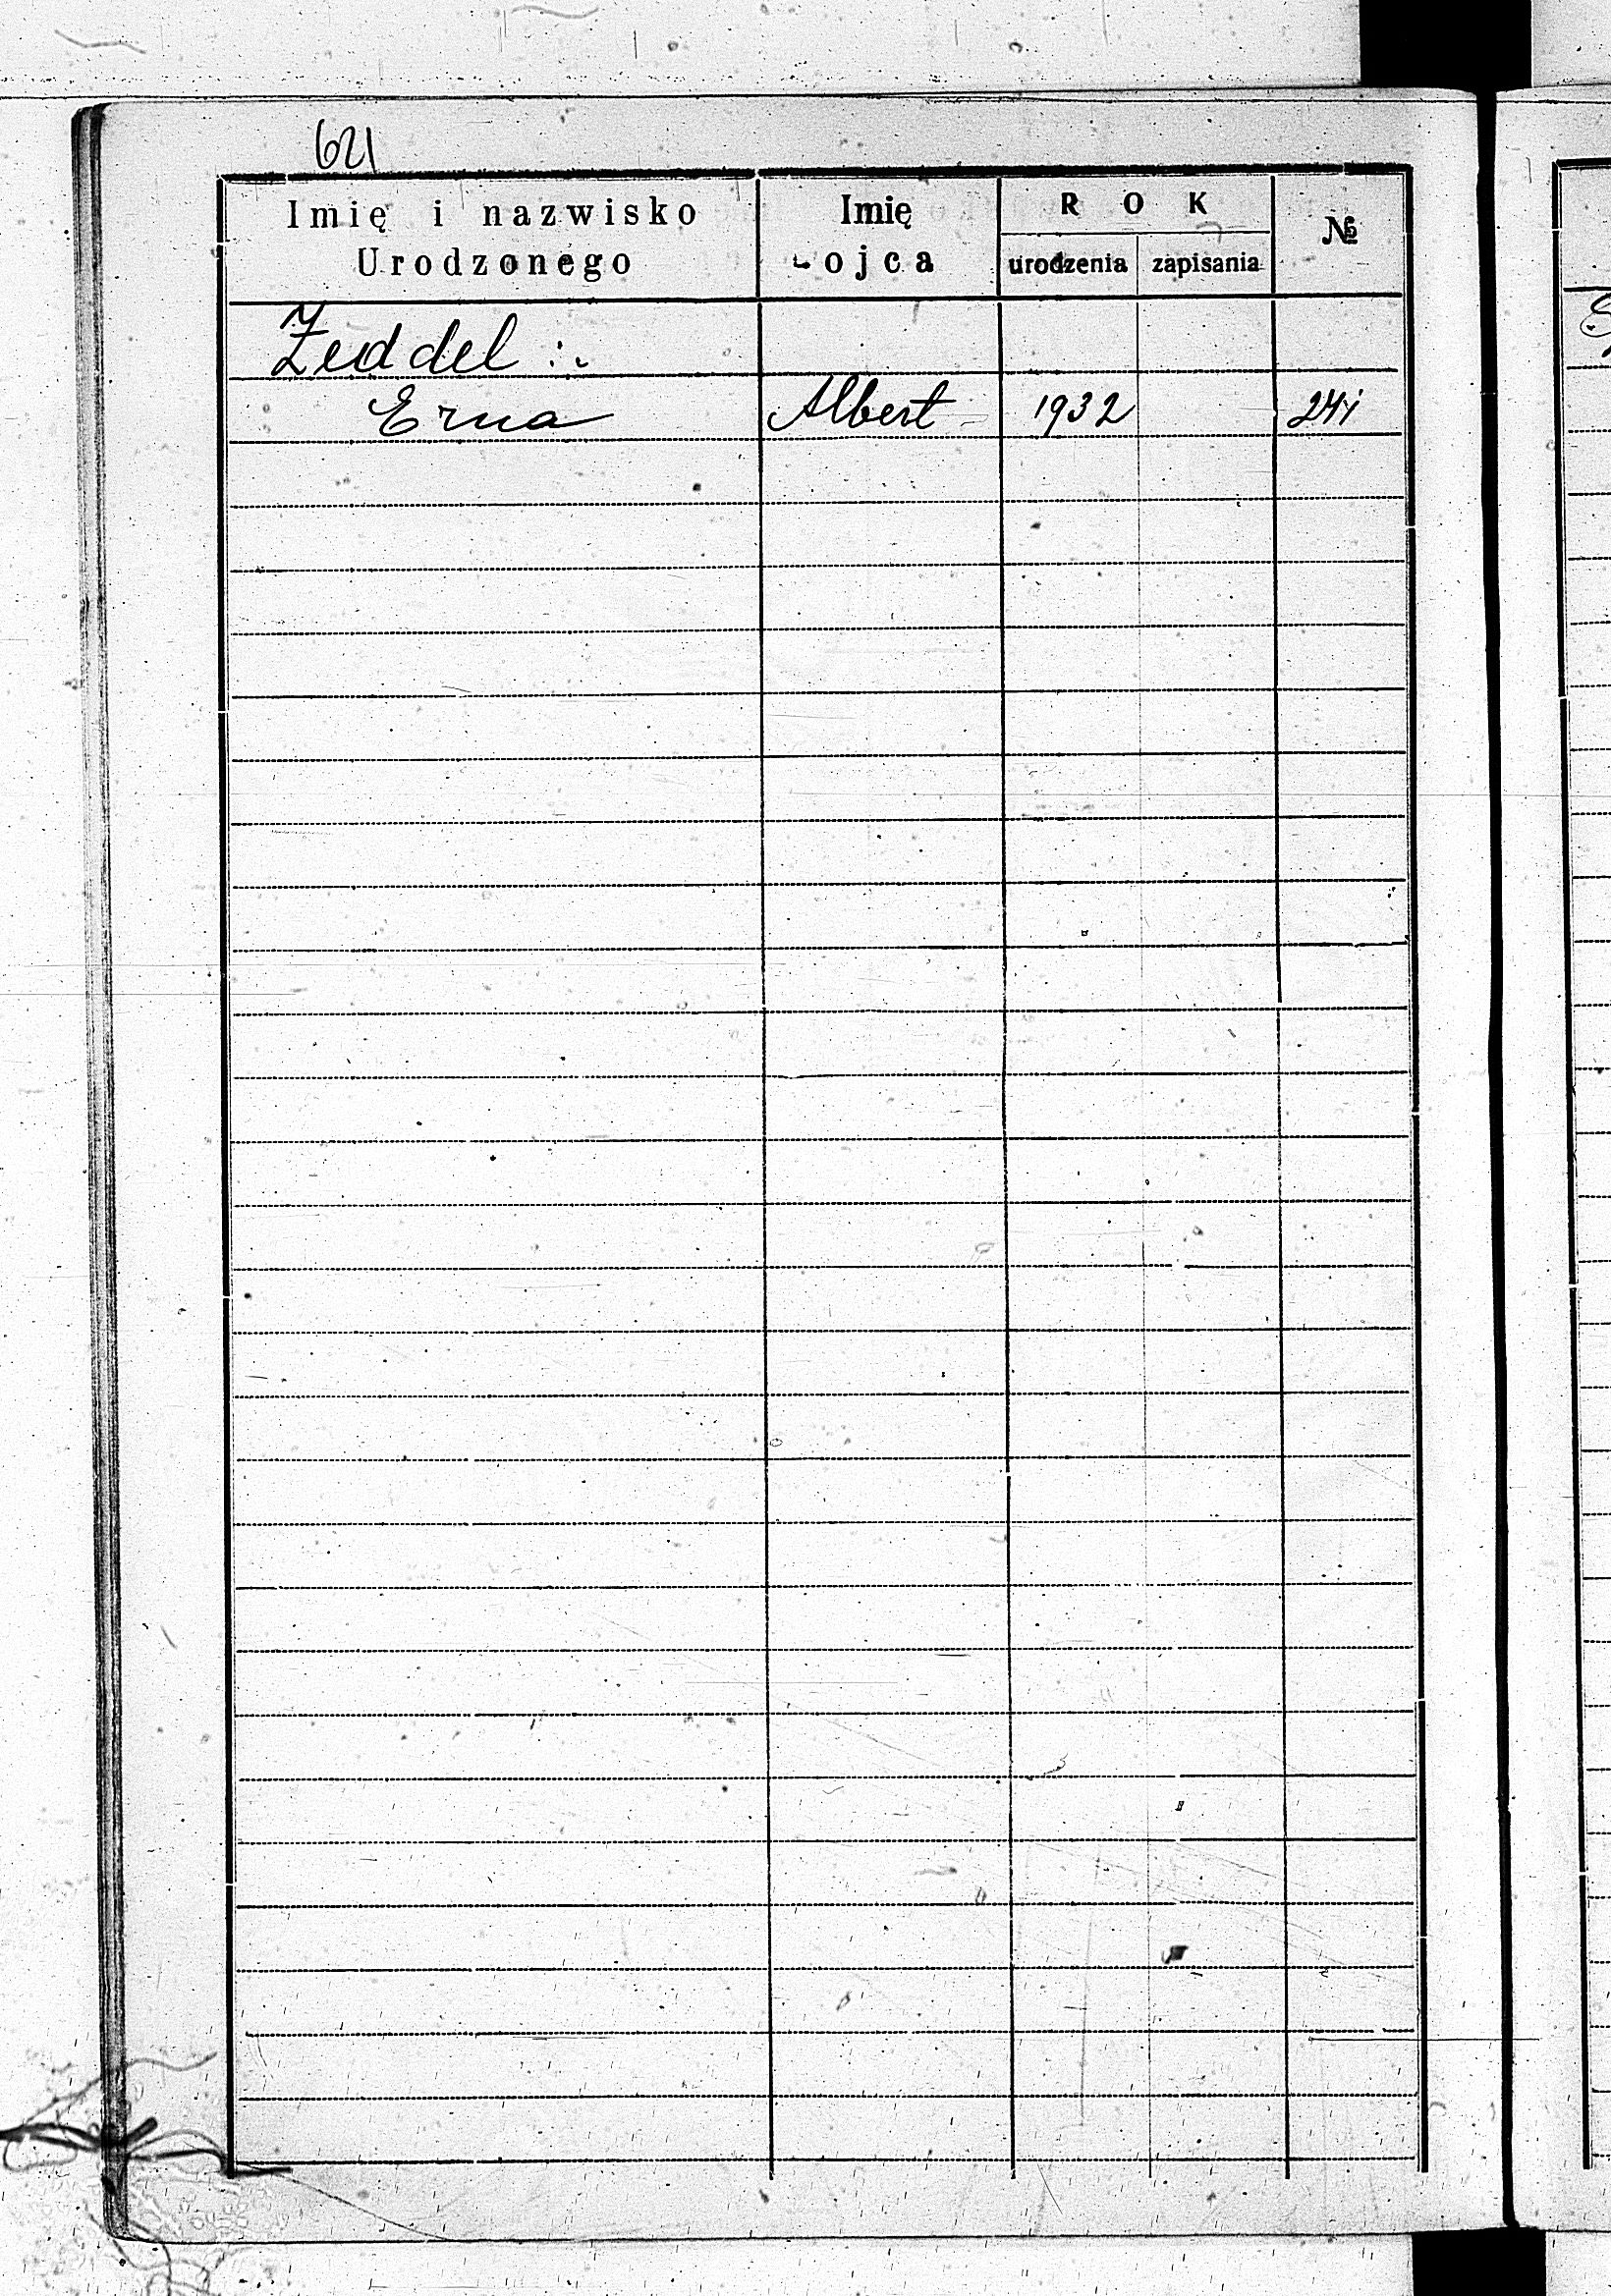 621
Imię i nazwisko Urodzonego
Imię ojca
ROK
urodzenia zapisania
№
Zeddel:
Erna Albert 1932 241